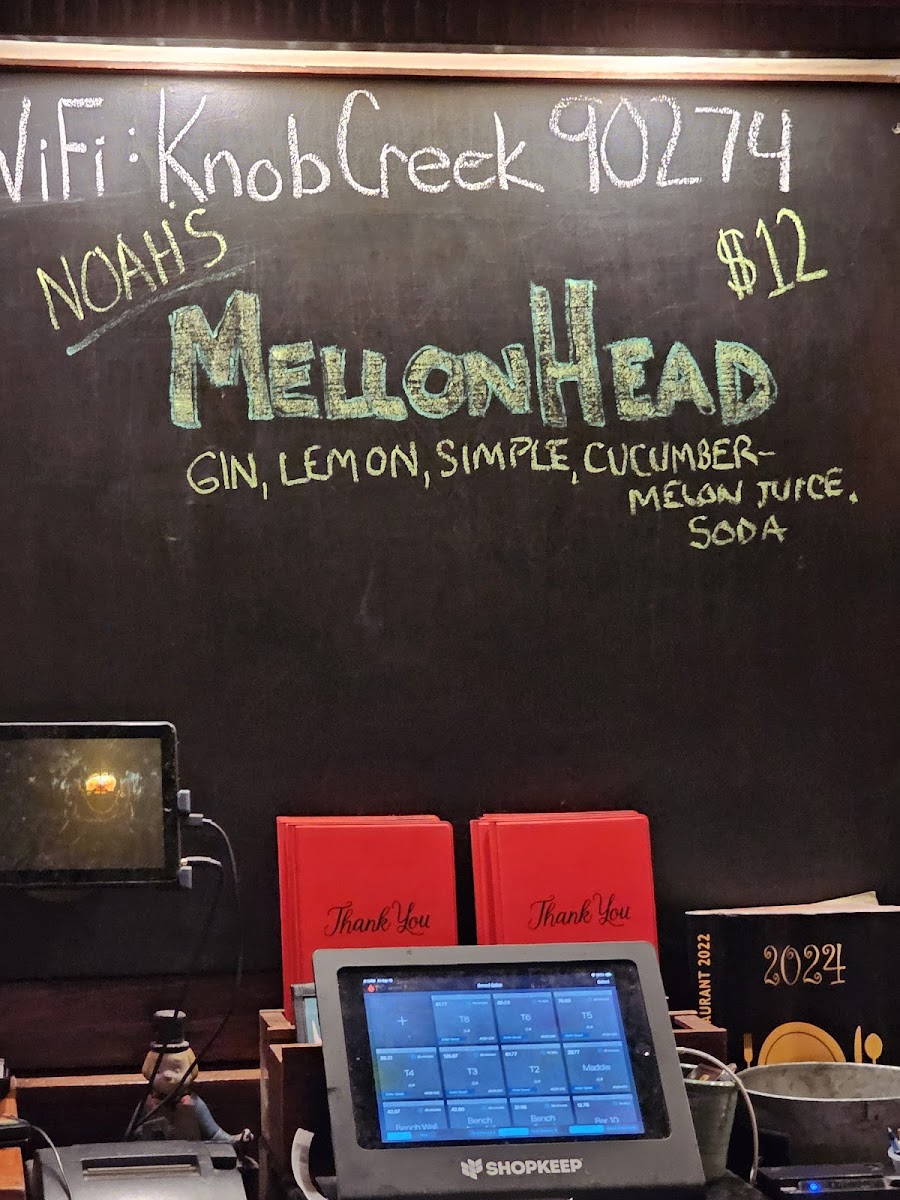 WiFi: KnobCreek 90274
NOAH'S
$12
MELLONHEAD
GIN, LEMON, SIMPLE, CUCUMBER-
MELON JUICE.
SODA
Thank You
Thank You
2024
AURANT 2022
+
T8
T6
T5
T4
T3
T2
Maddie
Bench Wall
Bench
Bench
Bar 10
SHOPKEEP